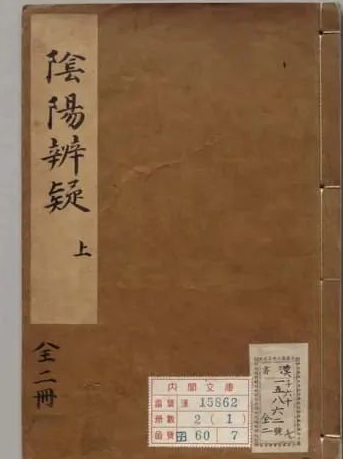 陰陽辨疑
上
全二冊
內閣文庫
番號 漢 15862
冊數 2(1)
函號 子 60 7
漢
一五八六二號
全二